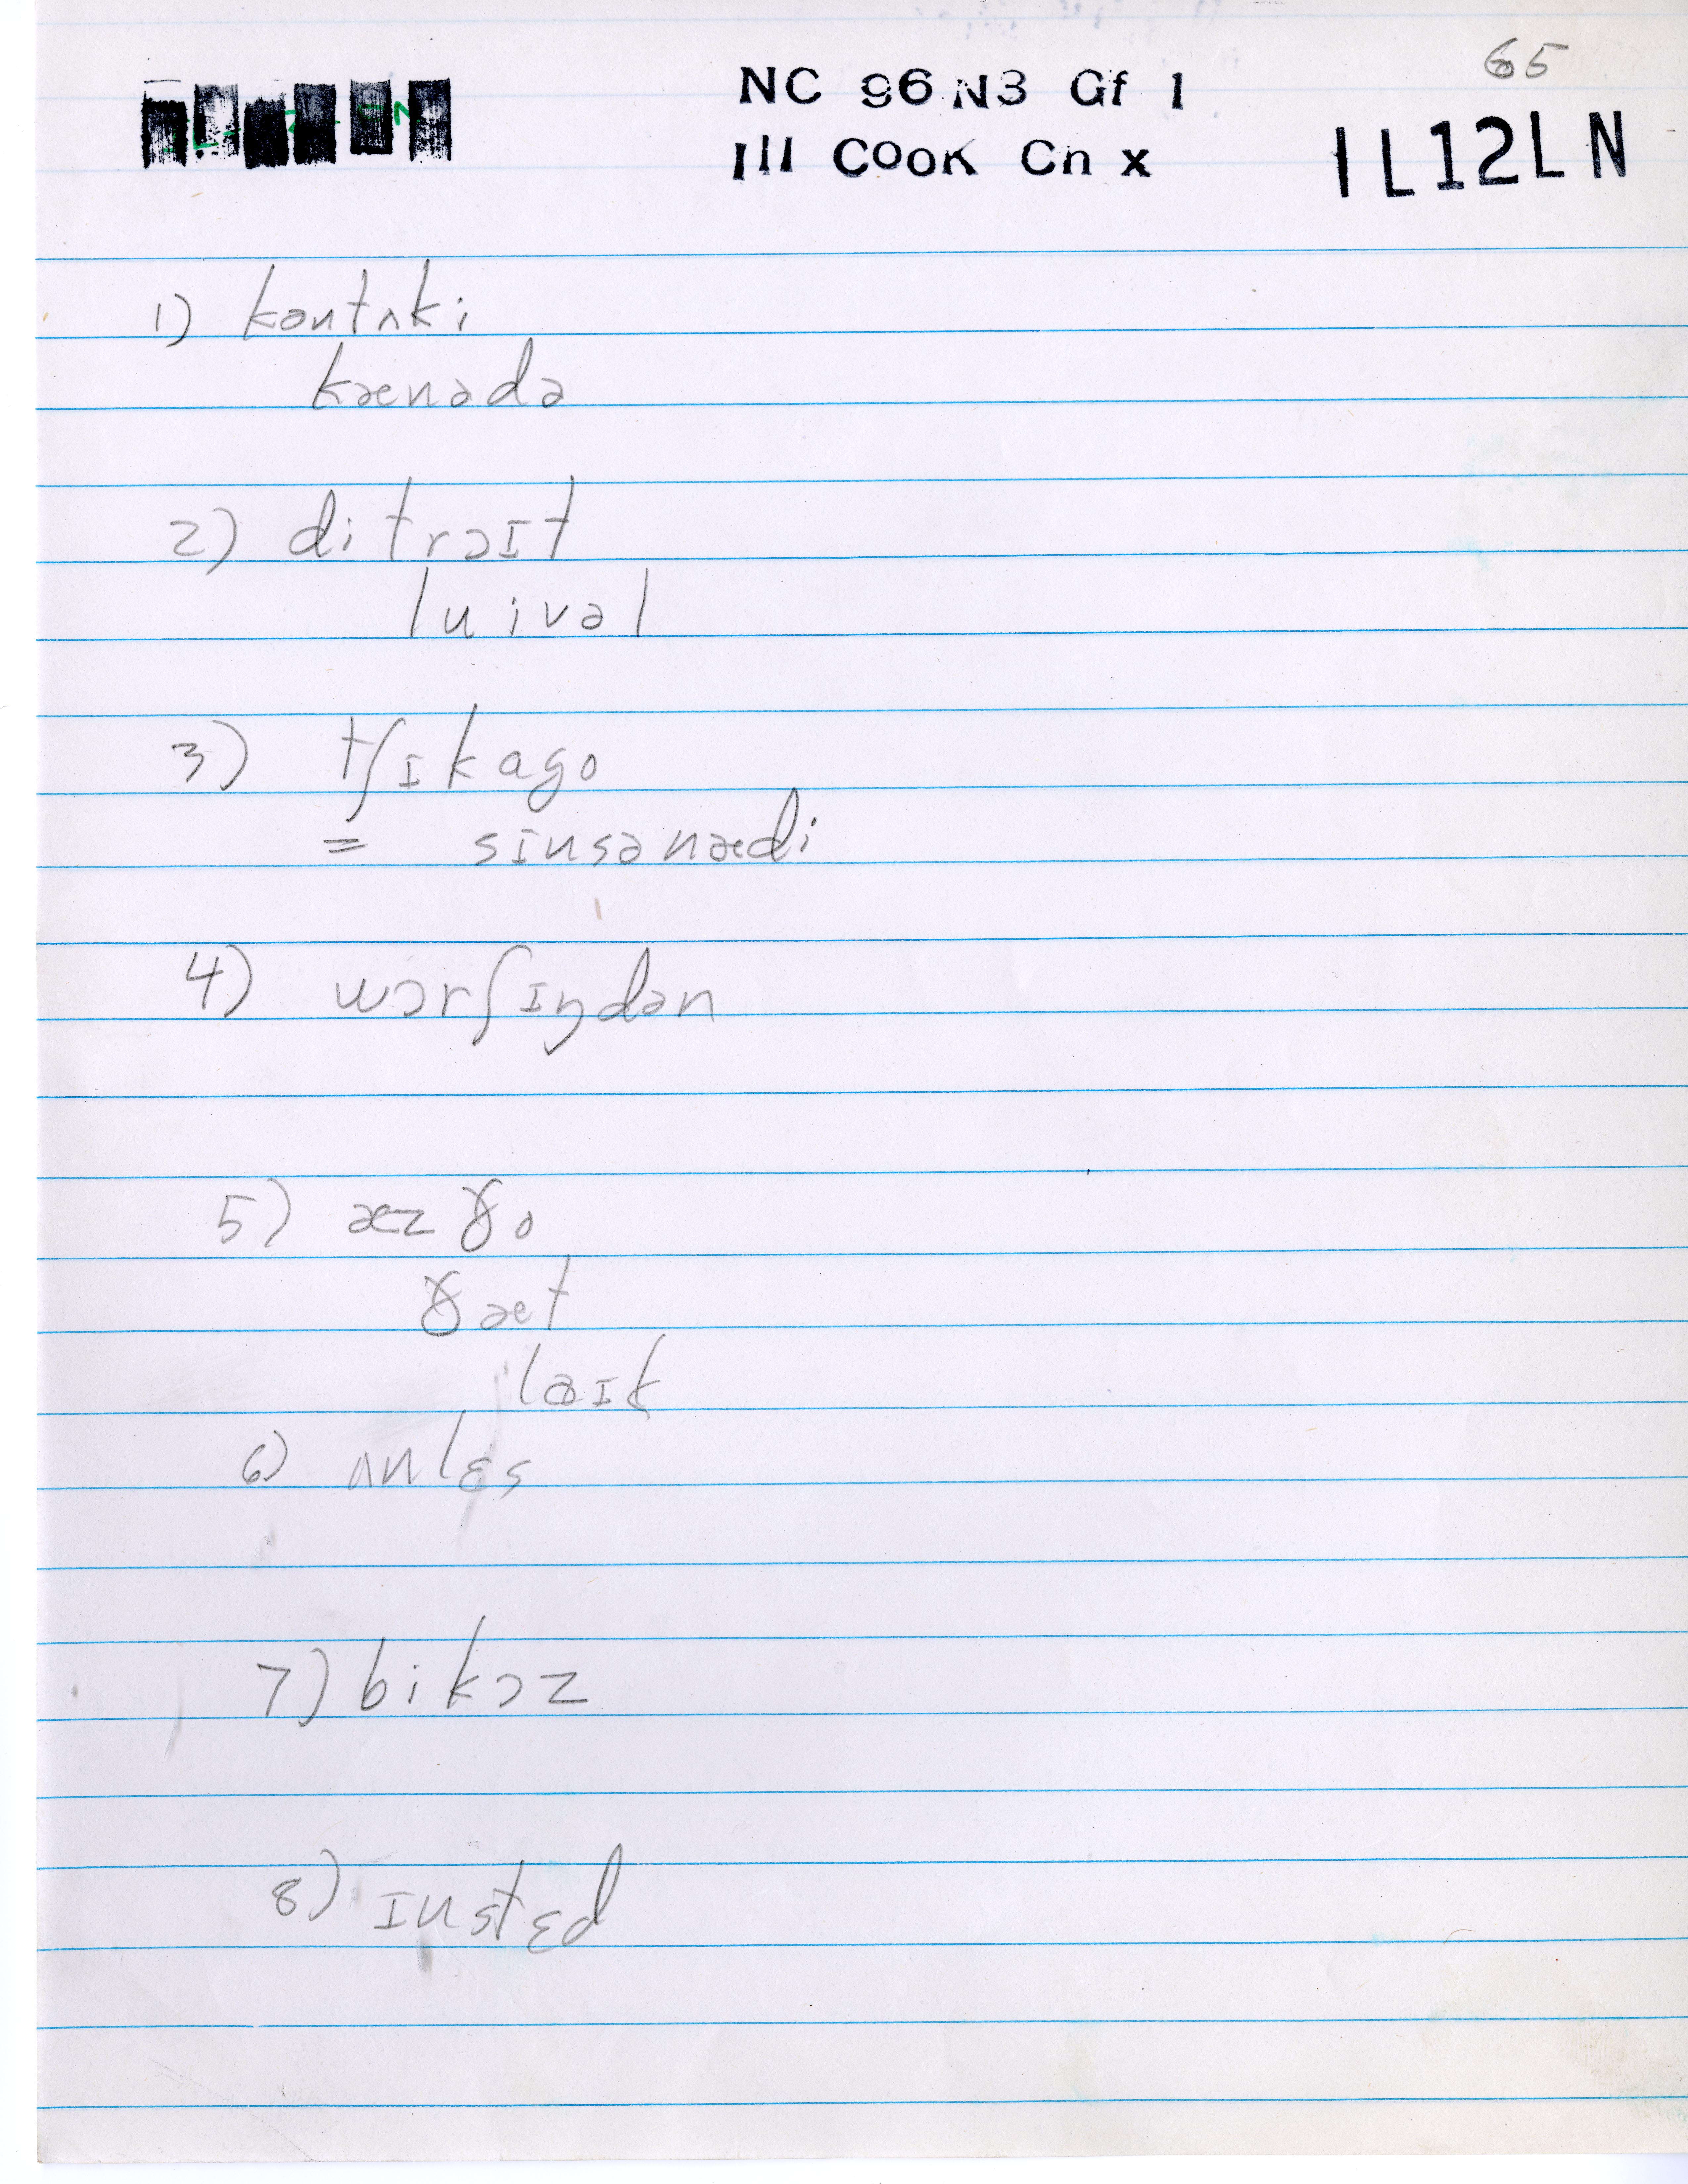 65
NC 96 N3 Gf 1
Ill COOK Ch x
IL12LN
1) kəntʌki
kænədə
2) ditrɔɪt
luivəl
3) tʃɪkago
= sɪnsənædi
4) wɔrʃɪŋdən
5) æz ðo
ðæt
laɪk
6) ʌnlɛs
7) bikɔz
8) ɪnstɛd